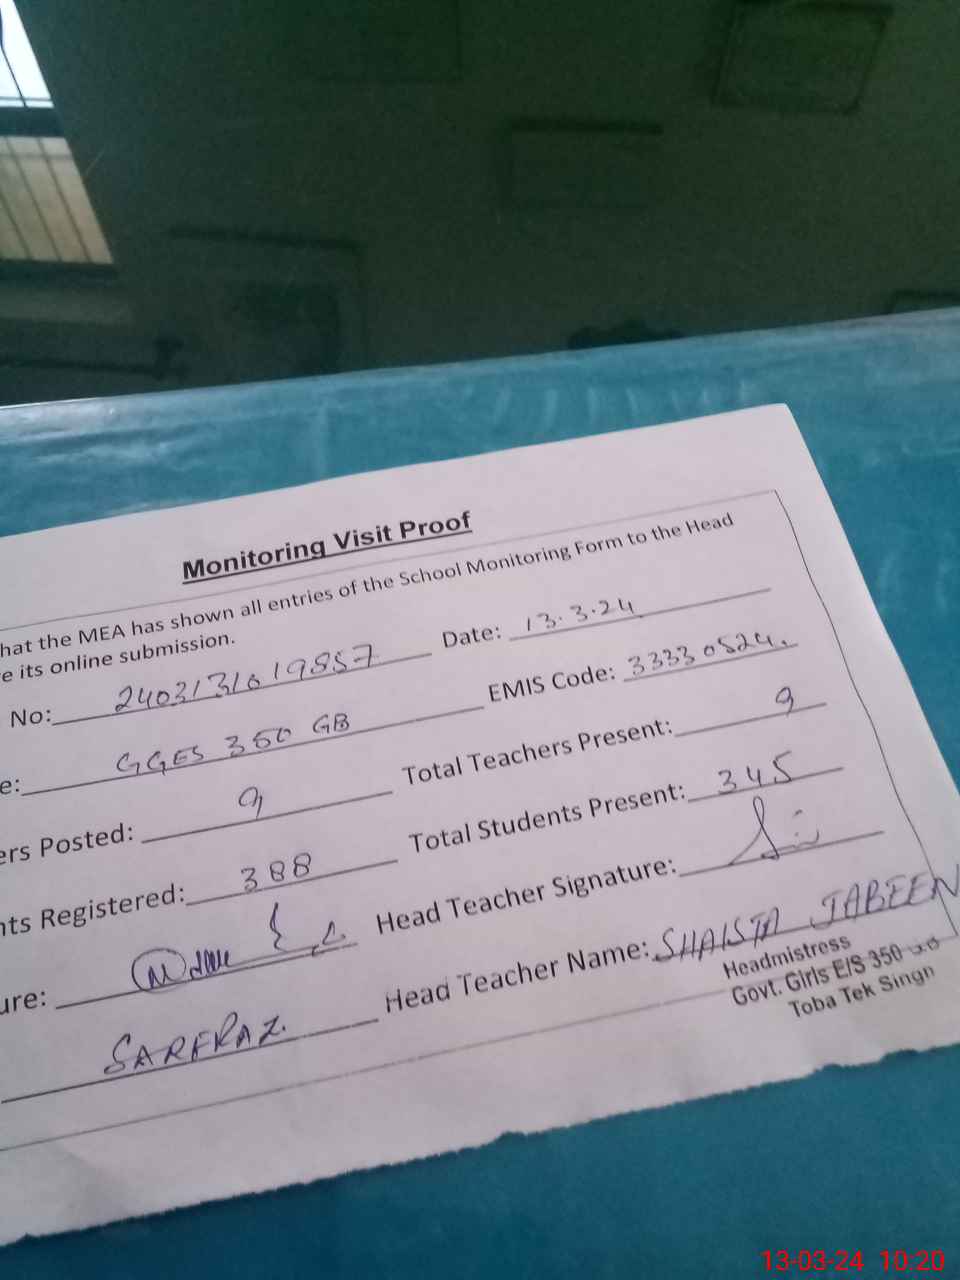 Monitoring Visit Proof
hat the MEA has shown all entries of the School Monitoring Form to the Head
e its online submission.
No: 2403131019857 Date: 13.3.24
e: GGES 350 GB EMIS Code: 33330524.
ers Posted: 9 Total Teachers Present: 9
nts Registered: 388 Total Students Present: 345
ure: Head Teacher Signature:
SARFRAZ Head Teacher Name: SHAISTA JABEEN
Headmistress
Govt. Girls E/S 350
Toba Tek Singh
13-03-24 10:20